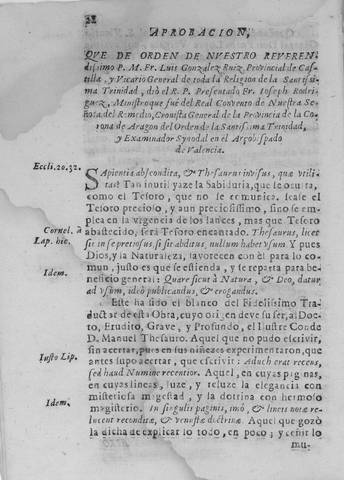 APROBACION,
QVE DE ORDEN DE NVESTRO REVEREN-
dissimo P. M. Fr. Luis Gonzalez Ruiz, Provincial de Cas-
tilla, y Vicario General de toda la Religion de la Santissi-
ma Trinidad, diò el R. P. Presentado Fr. Ioseph Rodri-
guez, Ministro que fuè del Real Convento de Nuestra Se-
ñora del Remedio, Cronista General de la Provincia de la Co-
rona de Aragon del Orden de la Santissima Trinidad,
y Examinador Synodal en el Arçobispado
de Valencia.
Eccli. 20. 32.
SApientia abscondita, & Thesaurus invisus, quæ vtili-
tas? Tan inutil yaze la Sabiduria, que se oculta,
como el Tesoro, que no se comunica. Seale el
Tesoro precioso, y aun preciosissimo, sino se em-
plea en la vrgencia de los lances, mas que Tesoro
abastecido, serà Tesoro encantado. Thesaurus, licet
Cornel. à
Lap. hic.
sit in se pretiosus, si sit abditus, nullum habet vsum. Y pues
Dios, y la Naturaleza, favorecen con èl para lo co-
mun, justo es que se estienda, y se reparta para be-
Idem.
neficio general: Quare sicut à Natura, & Deo, datur
ad vsum, ideò publicandus, & erogandus.
Este ha sido el blanco del Fidelissimo Tra-
ductor de esta Obra, cuyo ori en deve su ser, al Doc-
to, Erudito, Grave, y Profundo, el Ilustre Conde
D. Manuel Thesauro. Aquel que no pudo escrivir,
sin acertar, pues en sus niñezes experimentaron, que
Iusto Lip.
antes supo acertar, que escrivir: Aduch erat recens,
sed haud Numine recentior. Aquel, en cuyas paginas,
en cuyas lineas, luze, y reluze la elegancia con
misteriosa magestad, y la dotrina con hermoso
Idem.
magisterio. In singulis paginis, imò, & lineis notæ re-
lucent reconditæ, & venustæ doctrinæ. Aquel que gozò
la dicha de explicar lo todo, en poco; y ceñir lo
mu-